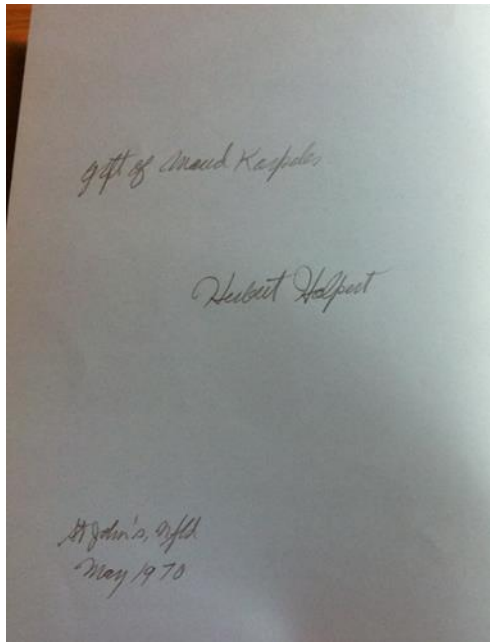 gift of Maud Karpeles
Herbert Halpert
St John's, Nfld
May 1970